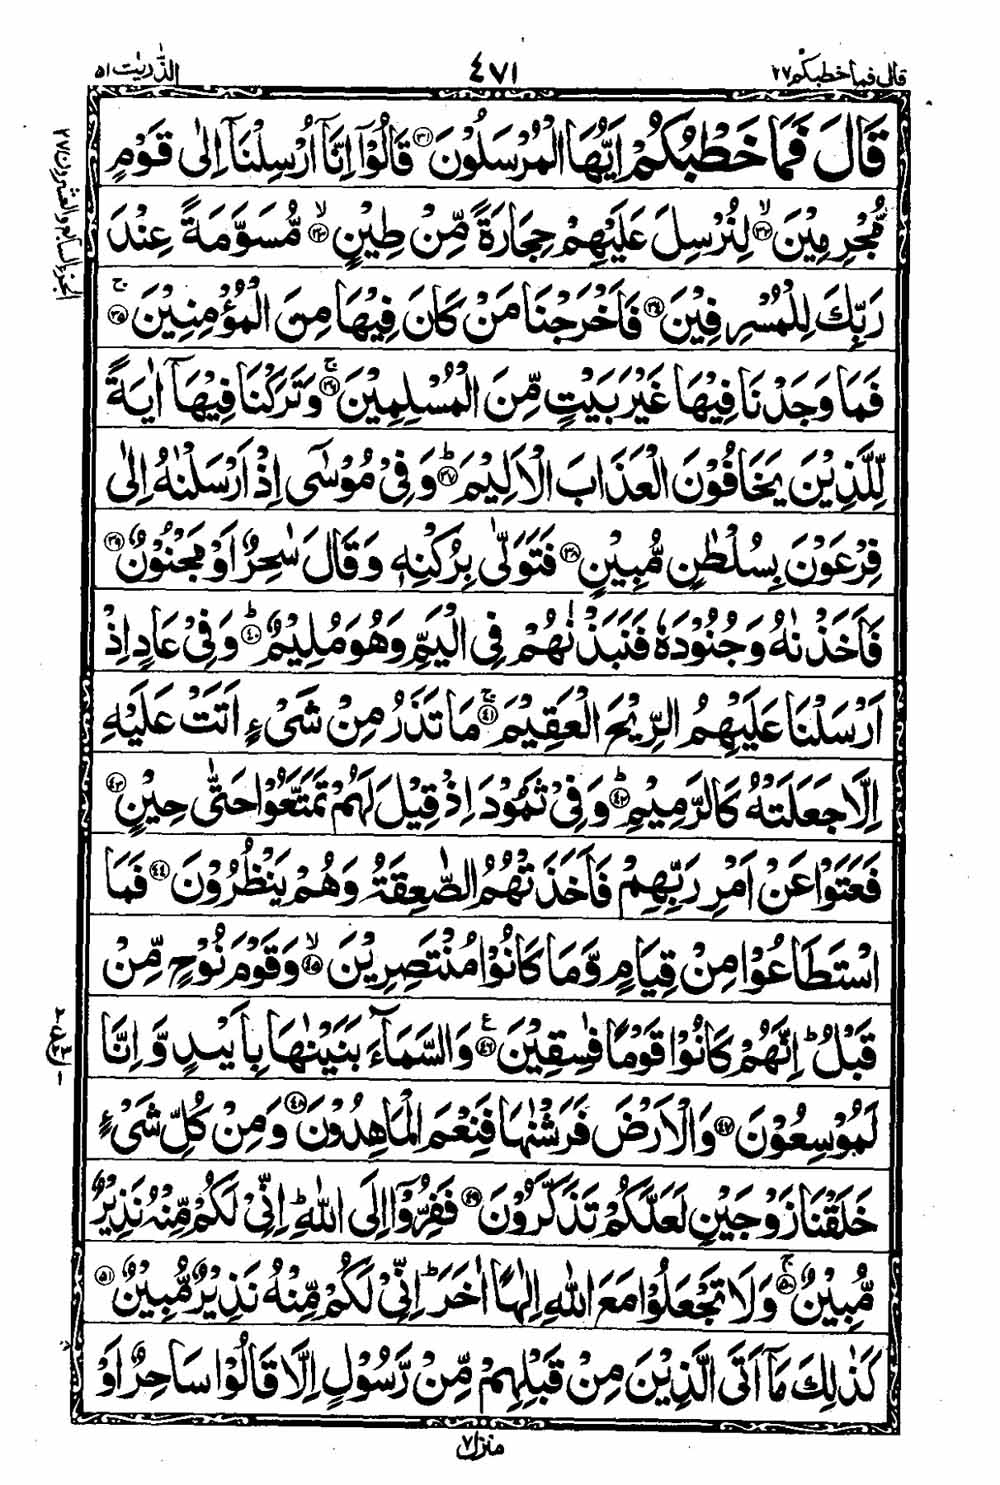 قال فما خطبكم ٢٧
٤٧١
الذّٰریٰت ٥١
قَالَ فَمَا خَطْبُكُمْ اَيُّهَا الْمُرْسَلُوْنَ ۝٣١ قَالُوْٓا اِنَّآ اُرْسِلْنَآ اِلٰى قَوْمٍ
مُّجْرِمِيْنَ ۝٣٢ۙ لِنُرْسِلَ عَلَيْهِمْ حِجَارَةً مِّنْ طِيْنٍ ۝٣٣ۙ مُّسَوَّمَةً عِنْدَ
رَبِّكَ لِلْمُسْرِفِيْنَ ۝٣٤ فَاَخْرَجْنَا مَنْ كَانَ فِيْهَا مِنَ الْمُؤْمِنِيْنَ ۝٣٥ۚ
فَمَا وَجَدْنَا فِيْهَا غَيْرَ بَيْتٍ مِّنَ الْمُسْلِمِيْنَ ۝٣٦ۚ وَتَرَكْنَا فِيْهَآ اٰيَةً
لِّلَّذِيْنَ يَخَافُوْنَ الْعَذَابَ الْاَلِيْمَ ۝٣٧ؕ وَفِيْ مُوْسٰٓى اِذْ اَرْسَلْنٰهُ اِلٰى
فِرْعَوْنَ بِسُلْطٰنٍ مُّبِيْنٍ ۝٣٨ فَتَوَلّٰى بِرُكْنِهٖ وَقَالَ سٰحِرٌ اَوْ مَجْنُوْنٌ ۝٣٩
فَاَخَذْنٰهُ وَجُنُوْدَهٗ فَنَبَذْنٰهُمْ فِي الْيَمِّ وَهُوَ مُلِيْمٌ ۝٤٠ؕ وَفِيْ عَادٍ اِذْ
اَرْسَلْنَا عَلَيْهِمُ الرِّيْحَ الْعَقِيْمَ ۝٤١ۚ مَا تَذَرُ مِنْ شَيْءٍ اَتَتْ عَلَيْهِ
اِلَّا جَعَلَتْهُ كَالرَّمِيْمِ ۝٤٢ؕ وَفِيْ ثَمُوْدَ اِذْ قِيْلَ لَهُمْ تَمَتَّعُوْا حَتّٰى حِيْنٍ ۝٤٣
فَعَتَوْا عَنْ اَمْرِ رَبِّهِمْ فَاَخَذَتْهُمُ الصّٰعِقَةُ وَهُمْ يَنْظُرُوْنَ ۝٤٤ فَمَا
اسْتَطَاعُوْا مِنْ قِيَامٍ وَّمَا كَانُوْا مُنْتَصِرِيْنَ ۝٤٥ۙ وَقَوْمَ نُوْحٍ مِّنْ
قَبْلُ ؕ اِنَّهُمْ كَانُوْا قَوْمًا فٰسِقِيْنَ ۝٤٦ع وَالسَّمَآءَ بَنَيْنٰهَا بِاَيْىدٍ وَّاِنَّا
لَمُوْسِعُوْنَ ۝٤٧ وَالْاَرْضَ فَرَشْنٰهَا فَنِعْمَ الْمَاهِدُوْنَ ۝٤٨ وَمِنْ كُلِّ شَيْءٍ
خَلَقْنَا زَوْجَيْنِ لَعَلَّكُمْ تَذَكَّرُوْنَ ۝٤٩ فَفِرُّوْٓا اِلَى اللّٰهِ ؕ اِنِّيْ لَكُمْ مِّنْهُ نَذِيْرٌ
مُّبِيْنٌ ۝٥٠ۚ وَلَا تَجْعَلُوْا مَعَ اللّٰهِ اِلٰهًا اٰخَرَ ؕ اِنِّيْ لَكُمْ مِّنْهُ نَذِيْرٌ مُّبِيْنٌ ۝٥١
كَذٰلِكَ مَآ اَتَى الَّذِيْنَ مِنْ قَبْلِهِمْ مِّنْ رَّسُوْلٍ اِلَّا قَالُوْا سَاحِرٌ اَوْ
منزل ٧
الجزء السابع والعشرون ٢٧